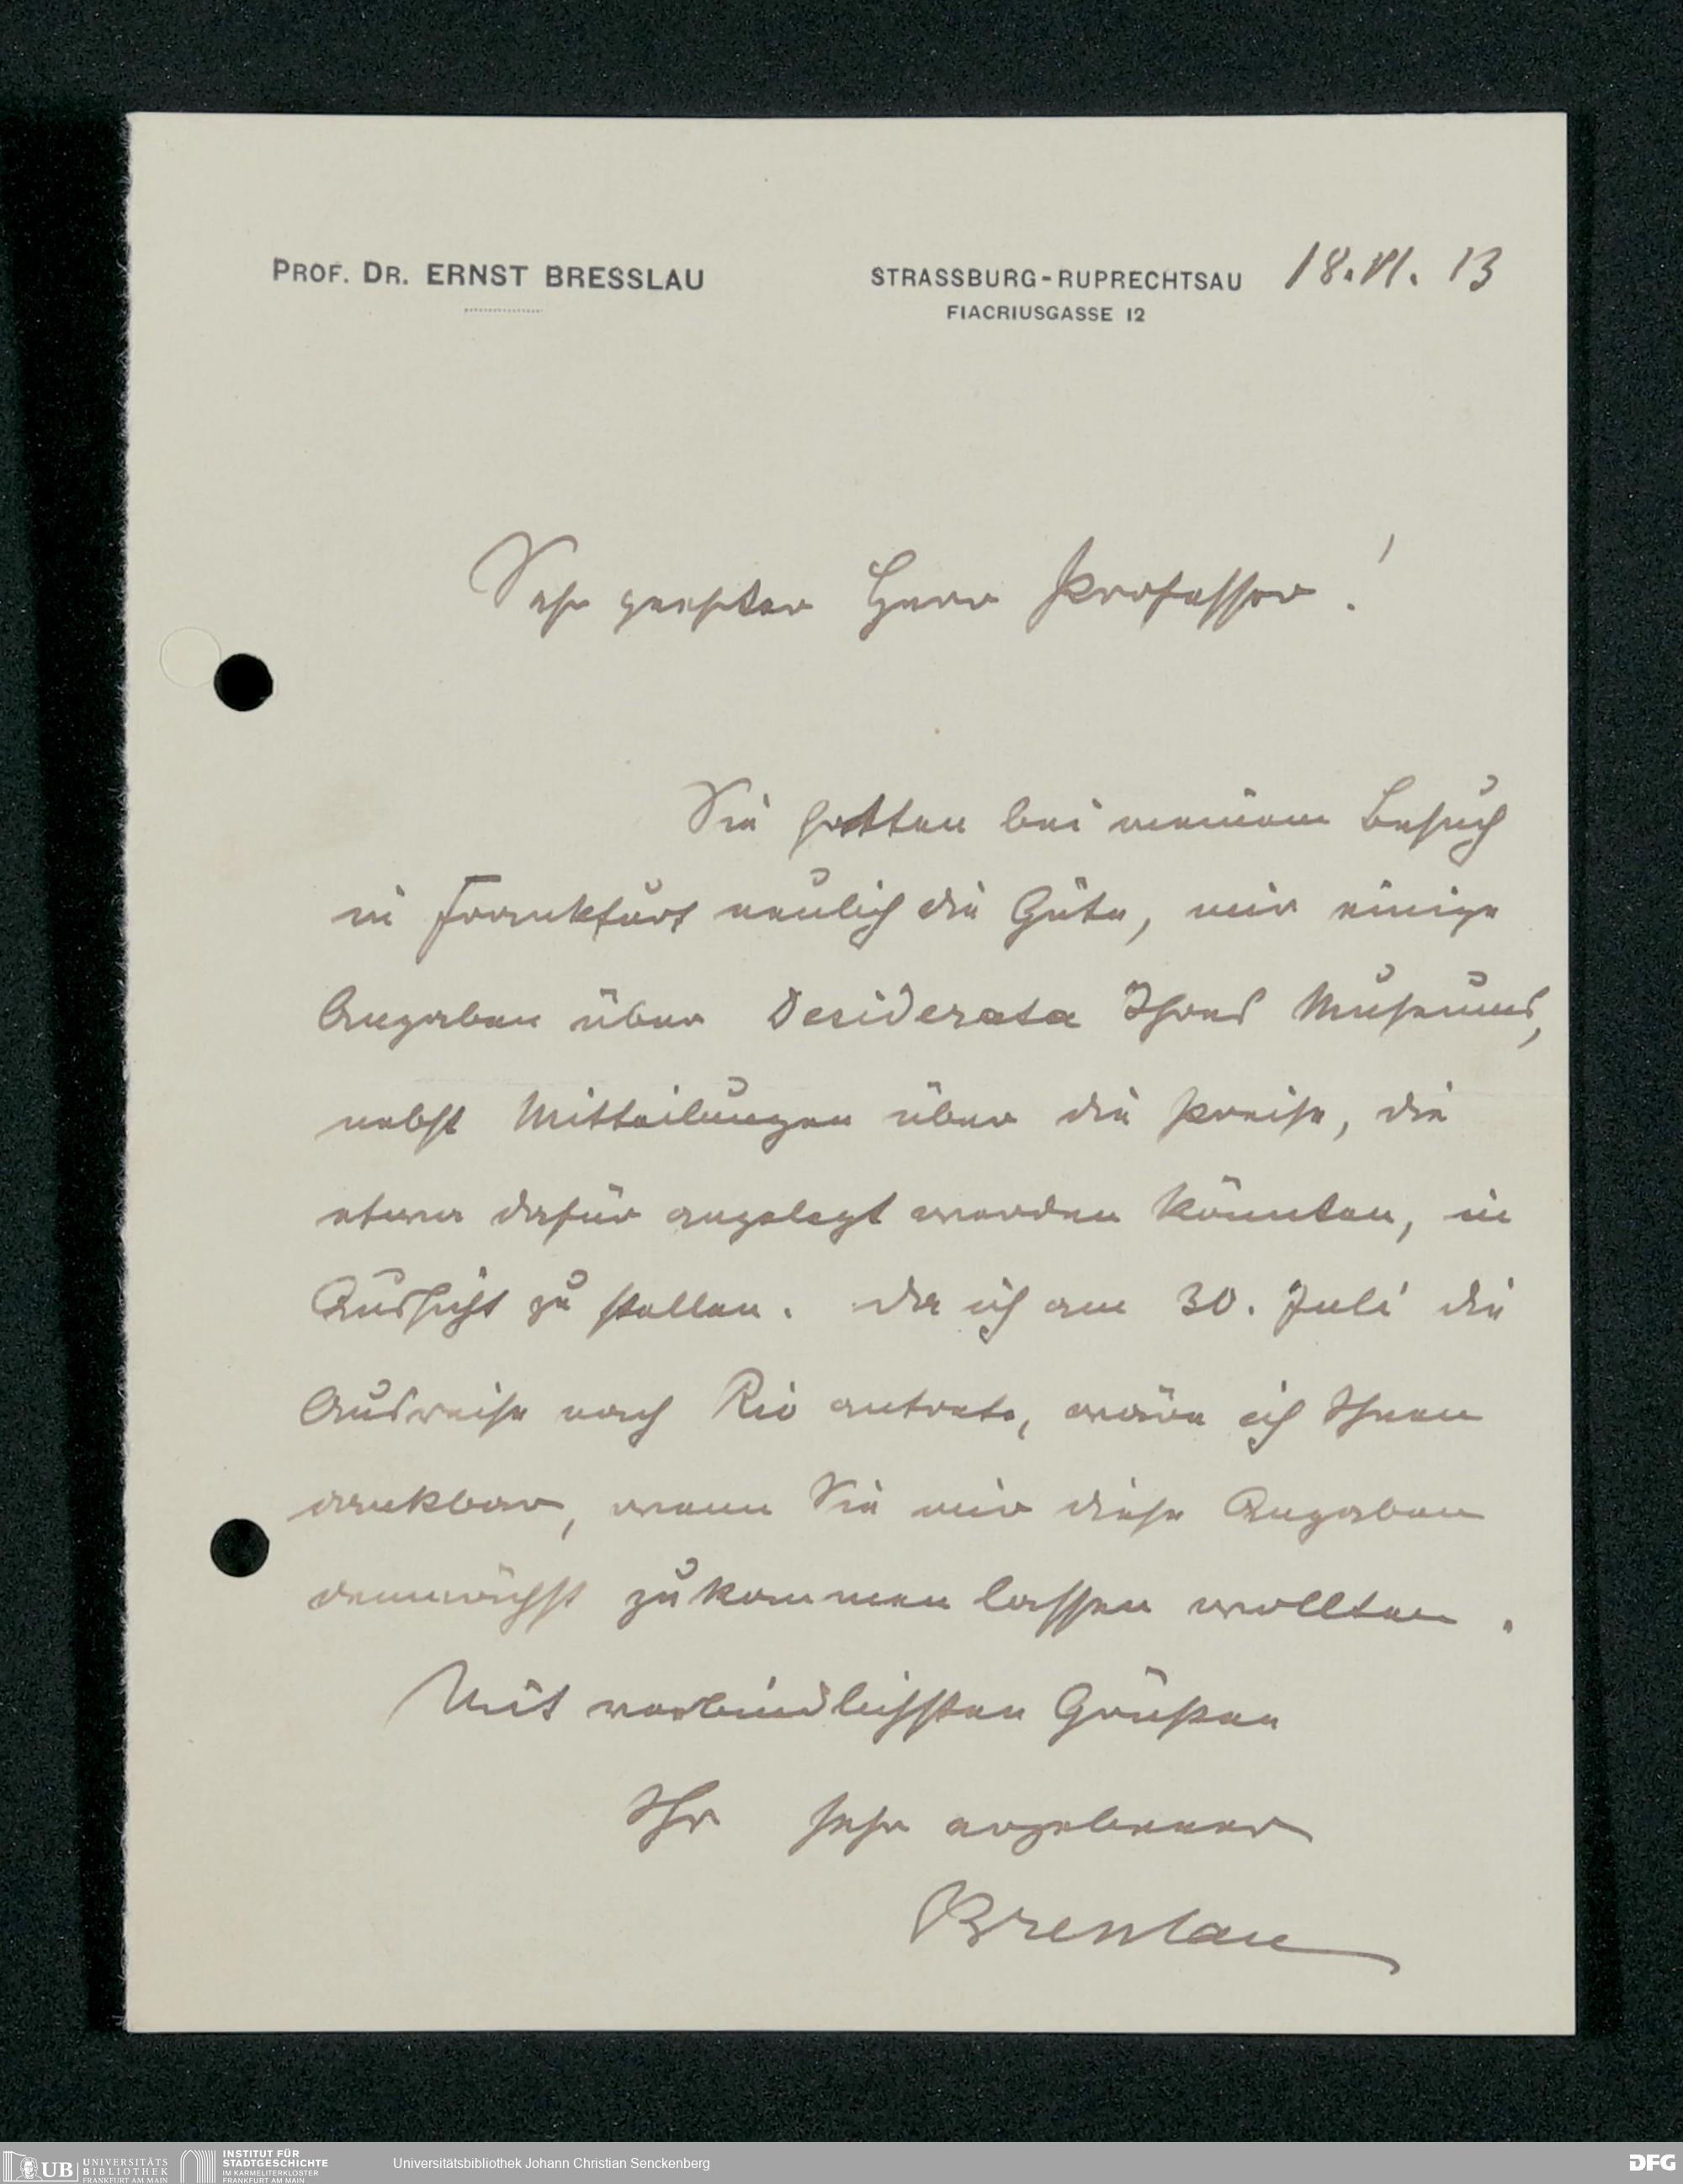 PROF. DR. ERNST BRESSLAU
STRASSBURG-RUPRECHTSAU 18.VI.13
FIACRIUSGASSE 12
Sehr geehrter Herr Professor!
Sie hatten bei meinem Besuch
in Frankfurt neulich die Güte, mir einige
Angaben über Desiderata Ihres Museums,
nebst Mitteilungen über die Preise, die
etwa dafür angelegt werden könnten, in
Aussicht zu stellen. Da ich am 30. Juli die
Ausreise nach Rio antrete, wäre ich Ihnen
dankbar, wenn Sie mir diese Angaben
demnächst zukommen lassen wollten.
Mit verbindlichsten Grüßen
Ihr sehr ergebener
Bresslau
UB UNIVERSITÄTS
BIBLIOTHEK
FRANKFURT AM MAIN
INSTITUT FÜR
STADTGESCHICHTE
IM KARMELITERKLOSTER
FRANKFURT AM MAIN
Universitätsbibliothek Johann Christian Senckenberg
DFG